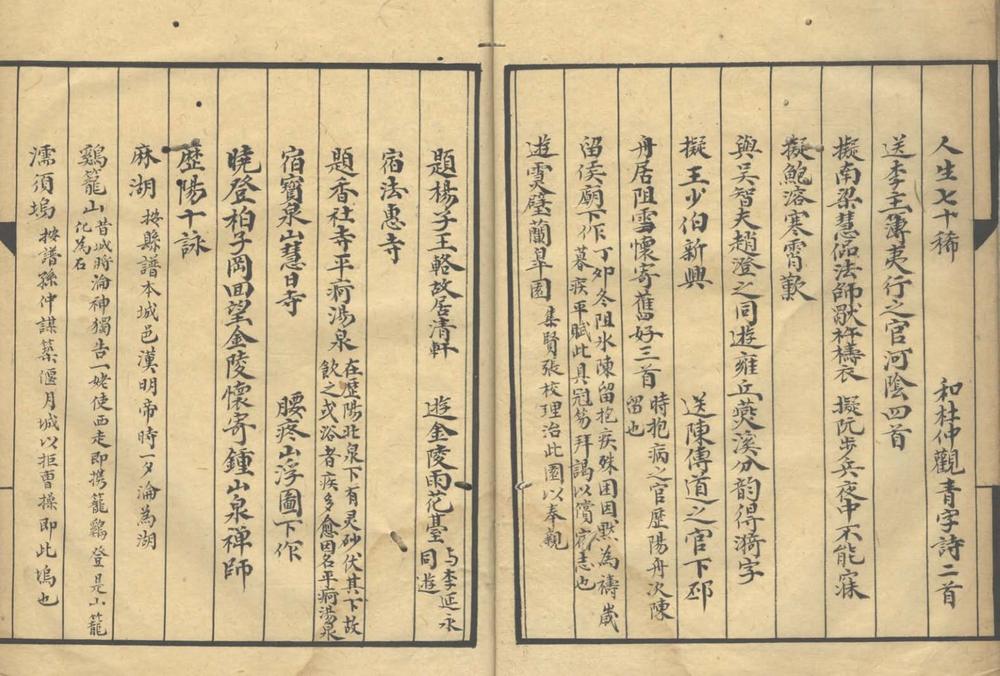 人生七十稀　和杜仲觀青字詩二首
送李主簿夷行之官河陰四首
擬南梁慧偘法師獸杵擣衣　擬阮步兵夜中不能寐
擬鮑溶寒霄歎
與吴智夫趙澄之同遊雍丘莢溪分韵得漪字
擬王少伯新興　送陳傳道之官下邳
舟居阻雪懷寄舊好三首　時抱病之官歷陽舟次陳
留也
留侯廟下作　丁夘冬阻氷陳留抱疾殊困因默為禱歲
暮疾平賦此具冠笏拜謁以償宿志也
遊雯壁蘭皐園　集賢張校理治此園以奉親
題楊子王輅故居清軒　遊金陵雨花臺　与李延永
同遊
宿法惠寺
題香社寺平疴湯泉　在歷陽北泉下有灵砂伏其下故
飲之或浴者疾多愈因名平疴湯泉
宿寳泉山慧日寺　腰疼山浮圖下作
曉登柏子岡回望金陵懷寄鍾山泉禪師
歷陽十詠
麻湖　按縣譜本城邑漢明帝時一夕淪為湖
鷄籠山　昔城將淪神獨告一姥使西走即携籠鷄登是山籠
化為石
濡須塢　按譜孫仲謀築偃月城以拒曹操即此塢也